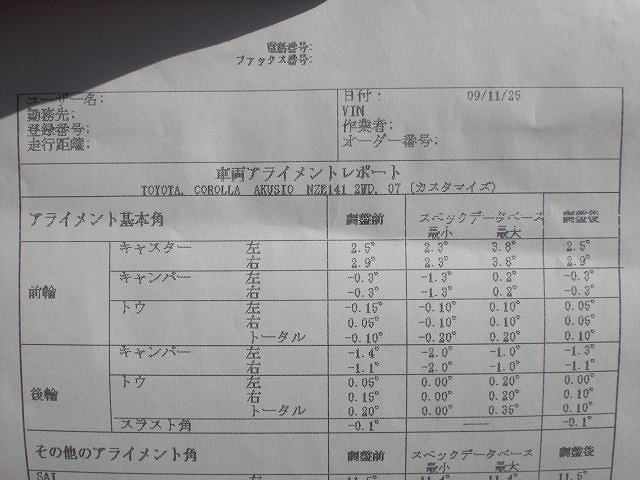 電話番号:
ファックス番号:
ユーザー名:
勤務先:
登録番号:
走行距離:
日付: 09/11/25
VIN
作業者:
オーダー番号:
車両アライメントレポート
TOYOTA, COROLLA AKUSIO NZE141 2WD, 07 (カスタマイズ)
アライメント基本角 調整前 スペックデータベース 調整後
最小 最大
前輪
キャスター 左 2.5° 2.3° 3.8° 2.5°
右 2.9° 2.3° 3.8° 2.9°
キャンバー 左 -0.3° -1.3° 0.2° -0.3°
右 -0.3° -1.3° 0.2° -0.3°
トウ 左 -0.15° -0.10° 0.10° 0.05°
右 0.05° -0.10° 0.10° 0.05°
トータル -0.10° -0.20° 0.20° 0.10°
後輪
キャンバー 左 -1.4° -2.0° -1.0° -1.3°
右 -1.1° -2.0° -1.0° -1.1°
トウ 左 0.05° 0.00° 0.20° 0.00°
右 0.15° 0.00° 0.20° 0.10°
トータル 0.20° 0.00° 0.35° 0.10°
スラスト角 -0.1° ---- -0.1°
その他のアライメント角 調整前 スペックデータベース 調整後
最小 最大
SAI 左 11.5° 11.4° 11.4° 11.5°